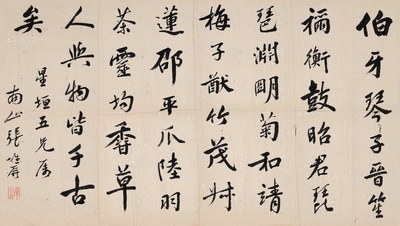 伯牙琴子晉笙
禰衡鼓昭君琵
琶淵明菊和靖
梅子猷竹茂叔
蓮邵平瓜陸羽
茶靈均香草
人與物皆千古
矣
星垣五兄屬
南山張維屏